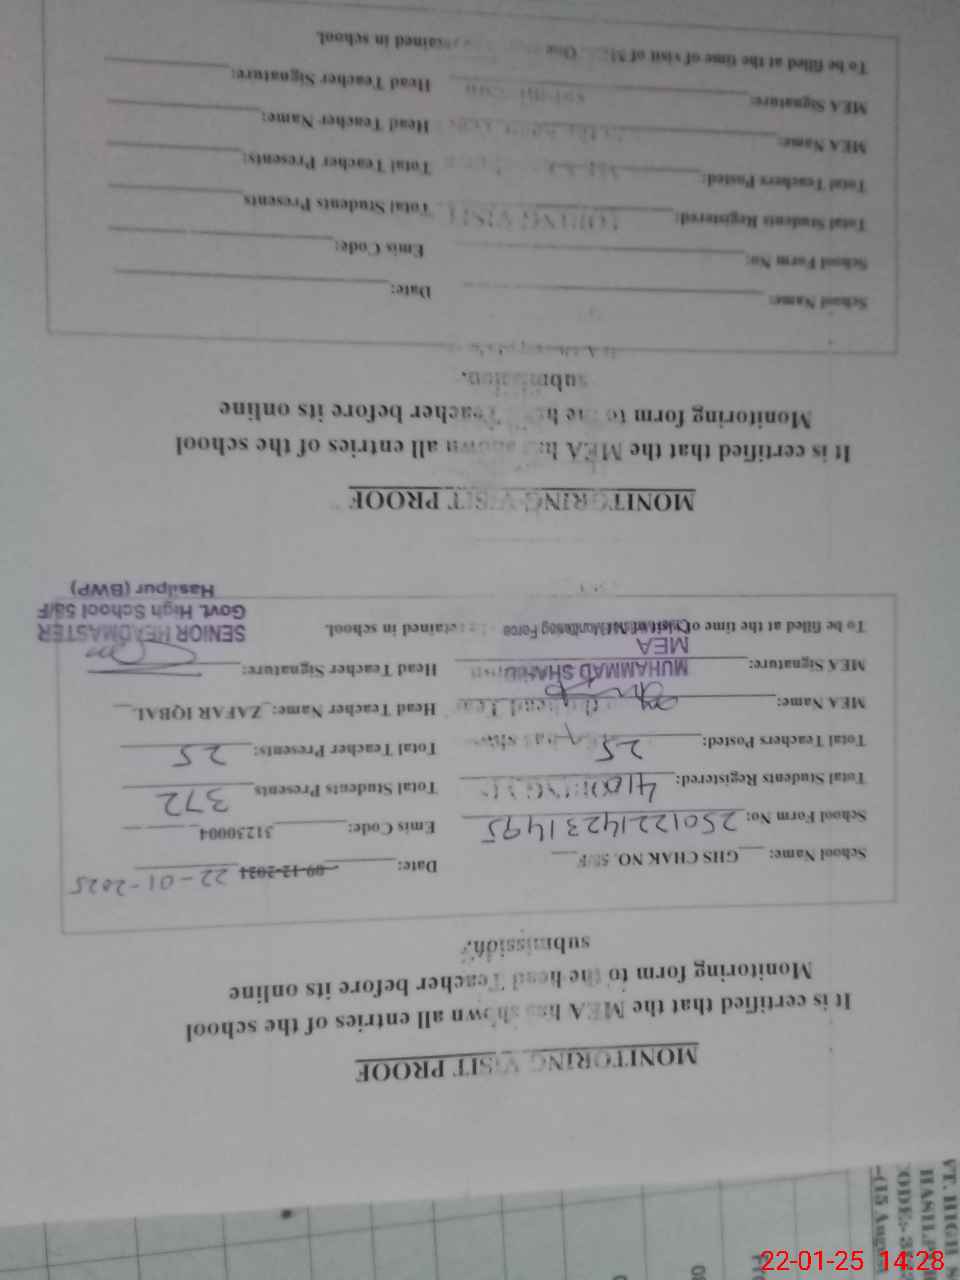 MONITORING VISIT PROOF
It is certified that the MEA has shown all entries of the school
Monitoring form to the head Teacher before its online
submission.
School Name: GHS CHAK NO. 58/F Date: 09-12-2024 22-01-2025
School Form No: 250122142314 95 Emis Code: 31230004
Total Students Registered: 410 Total Students Presents 372
Total Teachers Posted: 25 Total Teacher Presents: 25
MEA Name: Head Teacher Name: ZAFAR IQBAL
MEA Signature: Head Teacher Signature:
MUHAMMAD
MEA
Monitoring Force
To be filled at the time of visit of retained in school.
SENIOR HEADMASTER
Govt. High School 58/F
Hasilpur (BWP)
MONITORING VISIT PROOF
It is certified that the MEA has shown all entries of the school
Monitoring form to the head Teacher before its online
submission.
School Name: Date:
School Form No: Emis Code:
Total Students Registered: Total Students Presents
Total Teachers Posted: Total Teacher Presents:
MEA Name: Head Teacher Name:
MEA Signature: Head Teacher Signature:
To be filled at the time of visit of One retained in school.
VT. HIGH S
HASILP
CODE:- 3
(15 Augus
22-01-25 14:28